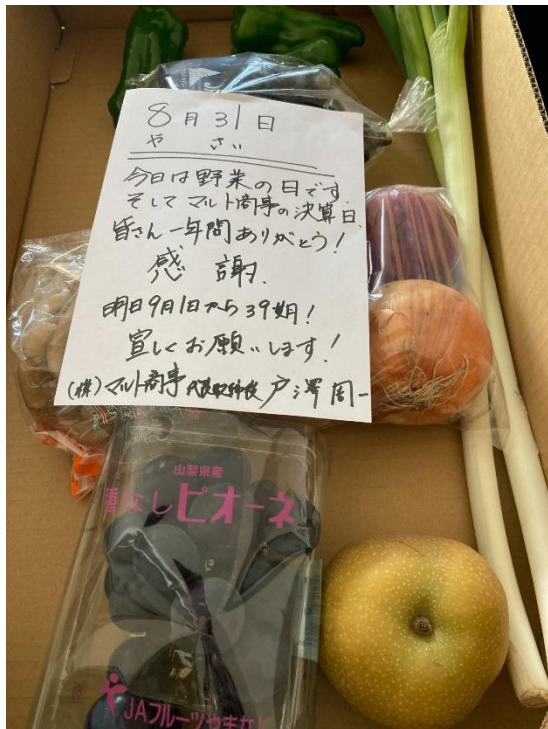 8月31日
やさい
今日は野菜の日です
そして マルト商事の決算日
皆さん一年間ありがとう!
感謝
明日9月1日から39期!
宜しくお願いします!
(株)マルト商事 代表取締役 戸澤周一
山梨県産
種なしピオーネ
JAフルーツやまなし